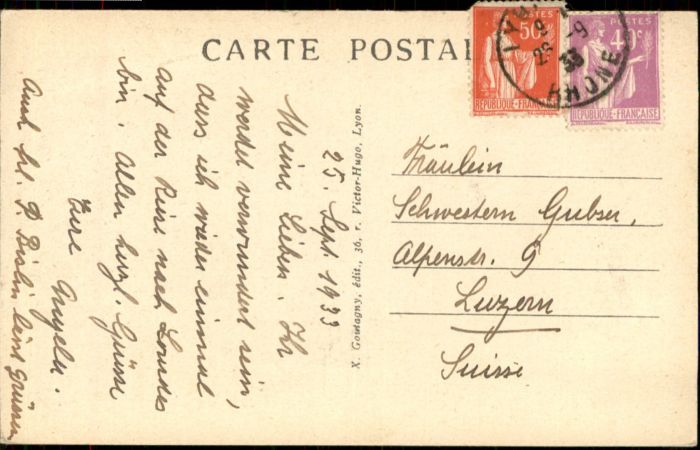 CARTE POSTAL
POSTES
50c
REPUBLIQUE-FRANÇAISE
POSTES
40c
REPUBLIQUE-FRANÇAISE
26 -9
33
RHONE
X. Goutagny, édit., 36, r. Victor-Hugo, Lyon.
Fräulein
Schwestern Gubser,
Alpenstr. 9
Luzern
Suisse
25. Sept. 1933
Meine Lieben. Ihr
werdet verwundert sein,
dass ich wieder einmal
auf der Reise nach Lourdes
bin. Allen herzl. Grüsse
Eure Angela.
Auch frl. P. lässt grüssen